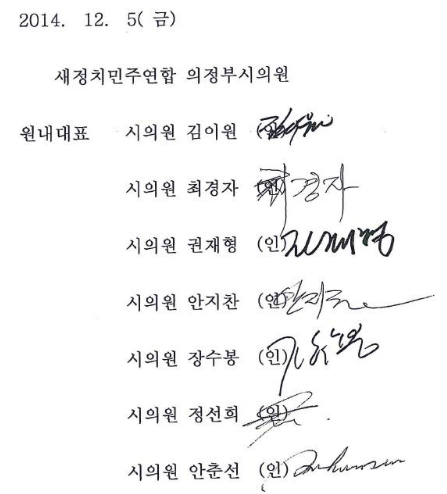 2014. 12. 5( 금)
새정치민주연합 의정부시의원
원내대표 시의원 김이원
시의원 최경자 (인) 최경자
시의원 권재형 (인) 권재형
시의원 안지찬 (인)
시의원 장수봉 (인)
시의원 정선희 (인)
시의원 안춘선 (인)